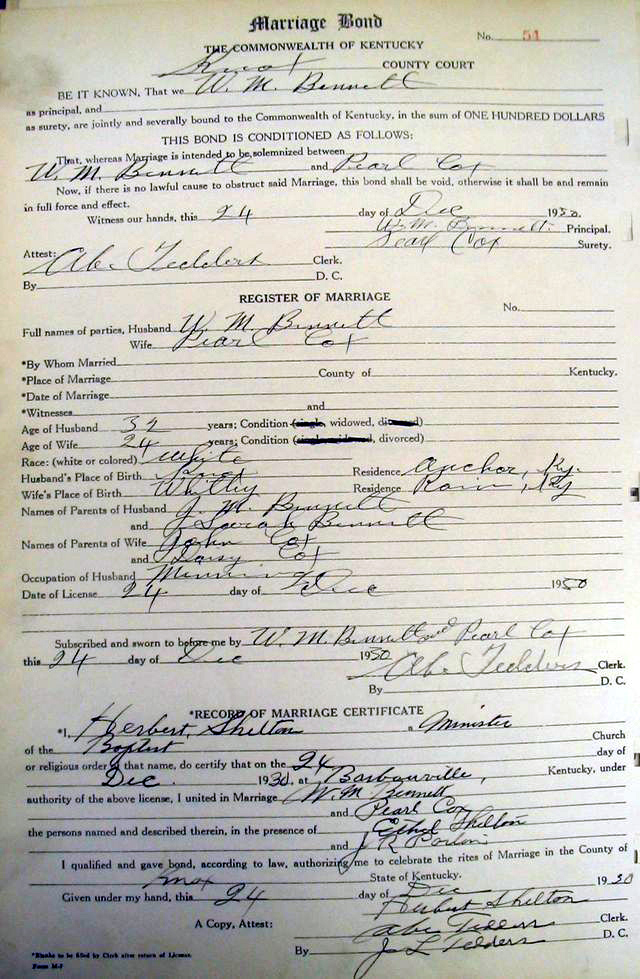 Marriage Bond
No. 51
THE COMMONWEALTH OF KENTUCKY
Knox COUNTY COURT
BE IT KNOWN, That we W. M. Bennett
as principal, and
as surety, are jointly and severally bound to the Commonwealth of Kentucky, in the sum of ONE HUNDRED DOLLARS
THIS BOND IS CONDITIONED AS FOLLOWS:
That, whereas Marriage is intended to be solemnized between
W. M. Bennett and Pearl Cox
Now, if there is no lawful cause to obstruct said Marriage, this bond shall be void, otherwise it shall be and remain
in full force and effect.
Witness our hands, this 24 day of Dec 1930.
W. M. Bennett. Principal.
Pearl Cox Surety.
Attest:
Abe Tedders Clerk.
By D. C.
REGISTER OF MARRIAGE
No.
Full names of parties, Husband W. M. Bennett
Wife Pearl Cox
*By Whom Married
*Place of Marriage County of Kentucky.
*Date of Marriage
*Witnesses and
Age of Husband 32 years; Condition (single, widowed, divorced)
Age of Wife 24 years; Condition (single, widowed, divorced)
Race: (white or colored) White
Husband's Place of Birth Knox Residence Anchor, Ky.
Wife's Place of Birth Whitley Residence Rain, Ky
Names of Parents of Husband J. M. Bennett
and Sarah Bennett
Names of Parents of Wife John Cox
and Daisy Cox
Occupation of Husband
Date of License 24 day of Dec 1930
Subscribed and sworn to before me by W. M. Bennett and Pearl Cox
this 24 day of Dec 1930
Abe Tedders Clerk.
By D. C.
*RECORD OF MARRIAGE CERTIFICATE
*I, Herbert Shelton a Minister
of the Baptist Church
or religious order of that name, do certify that on the 24 day of
Dec. 1930, at Barbourville, Kentucky, under
authority of the above license, I united in Marriage W. M. Bennett
and Pearl Cox
the persons named and described therein, in the presence of Ethel Shelton
and J R
I qualified and gave bond, according to law, authorizing me to celebrate the rites of Marriage in the County of
Knox State of Kentucky.
Given under my hand, this 24 day of Dec 1930
Herbert Shelton
A Copy, Attest: Abe Tedders Clerk.
By J L Tedders D. C.
*Blanks to be filled by Clerk after return of License.
Form M-F